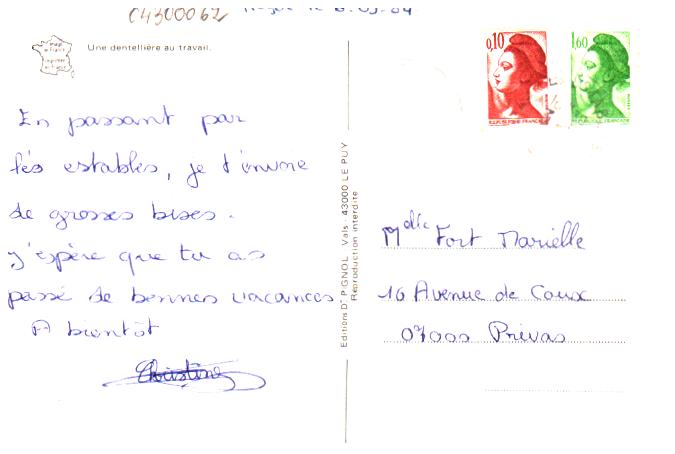 04300062
Une dentellière au travail.
0,10
1,60
REPUBLIQUE FRANÇAISE
REPUBLIQUE FRANÇAISE
En passant par
lés estables, je t'envoie
de grosses bises.
J'espère que tu as
passé de bonnes vacances
A bientôt
Christine
Editions Dʳ PIGNOL Vals - 43000 LE PUY
Reproduction interdite
Mᵈˡˡᵉ Fort Marielle
16 Avenue de Coux
07000 Privas